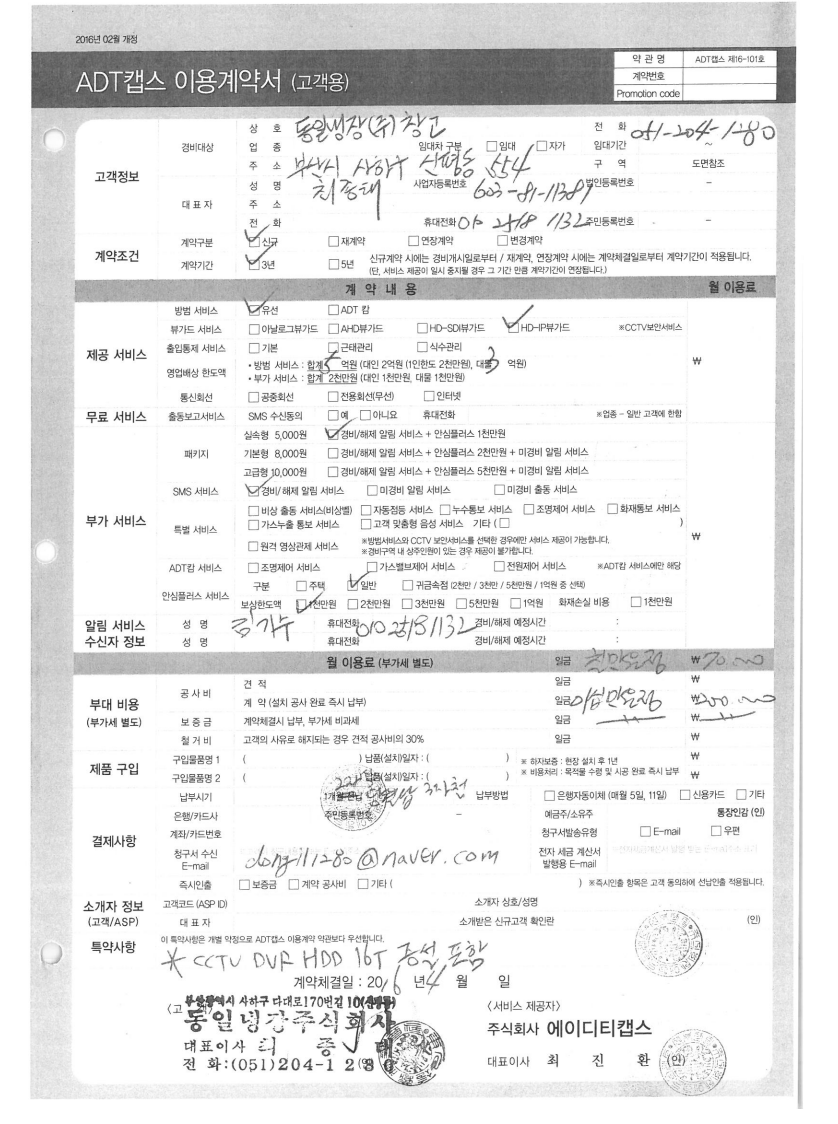 2016년 02월 개정
ADT캡스 이용계약서 (고객용)
약 관 명 ADT캡스 제16-101호
계약번호
Promotion code
고객정보
경비대상
상 호 동일냉장(주)창고 전 화 051-204-1280
업 종 임대차 구분 □임대 □자가 임대기간 ~
주 소 부산시 사하구 신평동 554 구 역 도면참조
대 표 자
성 명 최종태 사업자등록번호 603-81-11389 법인등록번호 -
주 소
전 화 휴대전화 010 2518 1132 주민등록번호 -
계약조건
계약구분 ☑신규 □재계약 □연장계약 □변경계약
계약기간 ☑3년 □5년 신규계약 시에는 경비개시일로부터 / 재계약, 연장계약 시에는 계약체결일로부터 계약기간이 적용됩니다.
(단, 서비스 제공이 일시 중지될 경우 그 기간 만큼 계약기간이 연장됩니다.)
계 약 내 용 월 이용료
제공 서비스
방범 서비스 ☑유선 □ADT 캄
뷰가드 서비스 □아날로그뷰가드 □AHD뷰가드 □HD-SDI뷰가드 ☑HD-IP뷰가드 ※CCTV보안서비스
출입통제 서비스 □기본 □근태관리 □식수관리
영업배상 한도액 • 방범 서비스 : 합계 5 억원 (대인 2억원 (1인한도 2천만원), 대물 3 억원) ₩
• 부가 서비스 : 합계 2천만원 (대인 1천만원, 대물 1천만원)
통신회선 □공중회선 □전용회선(무선) □인터넷
무료 서비스 출동보고서비스 SMS 수신동의 □예 □아니요 휴대전화 ※업종 - 일반 고객에 한함
부가 서비스
패키지
실속형 5,000원 ☑경비/해제 알림 서비스 + 안심플러스 1천만원
기본형 8,000원 □경비/해제 알림 서비스 + 안심플러스 2천만원 + 미경비 알림 서비스
고급형 10,000원 □경비/해제 알림 서비스 + 안심플러스 5천만원 + 미경비 알림 서비스
SMS 서비스 ☑경비/해제 알림 서비스 □미경비 알림 서비스 □미경비 출동 서비스
특별 서비스 □비상 출동 서비스(비상벨) □자동점등 서비스 □누수통보 서비스 □조명제어 서비스 □화재통보 서비스
□가스누출 통보 서비스 □고객 맞춤형 음성 서비스 기타 (□ )
₩
□원격 영상관제 서비스 ※방범서비스와 CCTV 보안서비스를 선택한 경우에만 서비스 제공이 가능합니다.
※경비구역 내 상주인원이 있는 경우 제공이 불가합니다.
ADT캄 서비스 □조명제어 서비스 □가스밸브제어 서비스 □전원제어 서비스 ※ADT캄 서비스에만 해당
안심플러스 서비스
구분 □주택 ☑일반 □귀금속점 (2천만 / 3천만 / 5천만원 / 1억원 중 선택)
보상한도액 ☑1천만원 □2천만원 □3천만원 □5천만원 □1억원 화재손실 비용 □1천만원
알림 서비스 수신자 정보
성 명 휴대전화 010 2518 1132 경비/해제 예정시간 :
성 명 휴대전화 경비/해제 예정시간 :
월 이용료 (부가세 별도) 일금 칠만원정 ₩70.000
부대 비용 (부가세 별도)
공 사 비
견 적 일금 ₩
계 약 (설치 공사 완료 즉시 납부) 일금 이십만원정 ₩200.000
보 증 금 계약체결시 납부, 부가세 비과세 일금 ₩
철 거 비 고객의 사유로 해지되는 경우 견적 공사비의 30% 일금 ₩
제품 구입
구입물품명 1 ( ) 납품(설치)일자 : ( ) ※ 하자보증 : 현장 설치 후 1년 ₩
구입물품명 2 ( ) 납품(설치)일자 : ( ) ※ 비용처리 : 목적물 수령 및 시공 완료 즉시 납부 ₩
결제사항
납부시기 1개월 선납 납부방법 □은행자동이체 (매월 5일, 11일) □신용카드 □기타
은행/카드사 주민등록번호 - 예금주/소유주 통장인감 (인)
계좌/카드번호 청구서발송유형 □E-mail □우편
청구서 수신 E-mail dongil1280@naver.com 전자 세금 계산서 발행용 E-mail
즉시인출 □보증금 □계약 공사비 □기타 ( ) ※즉시인출 항목은 고객 동의하에 선납인출 적용됩니다.
소개자 정보 (고객/ASP)
고객코드 (ASP ID) 소개자 상호/성명
대 표 자 소개받은 신규고객 확인란 (인)
특약사항 이 특약사항은 개별 약정으로 ADT캡스 이용계약 약관보다 우선합니다.
* CCTV DVR HDD 16T 증설 포함
계약체결일 : 2016 년 4 월 일
부산광역시 사하구 다대로170번길 10(신평동)
동일냉장주식회사
대표이사 최 종 태
전 화:(051)204-1280
〈서비스 제공자〉
주식회사 에이디티캡스
대표이사 최 진 환 (인)